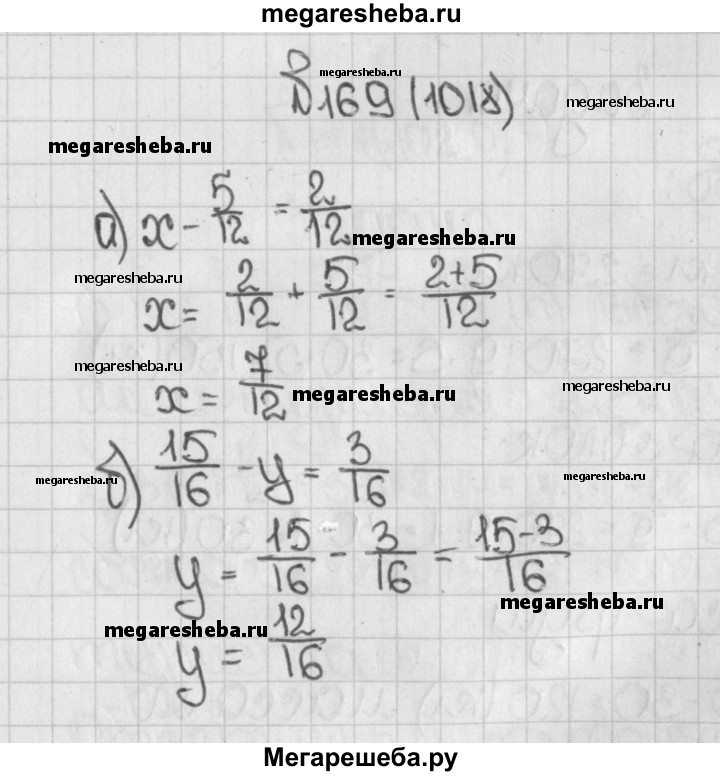 megaresheba.ru
№169 (1018) megaresheba.ru megaresheba.ru
megaresheba.ru
а) x - 5/12 = 2/12 megaresheba.ru
megaresheba.ru
x = 2/12 + 5/12 = (2+5)/12
megaresheba.ru
x = 7/12 megaresheba.ru megaresheba.ru
б) 15/16 - y = 3/16
megaresheba.ru megaresheba.ru
y = 15/16 - 3/16 = (15-3)/16
megaresheba.ru
megaresheba.ru
y = 12/16
Мегарешеба.ру